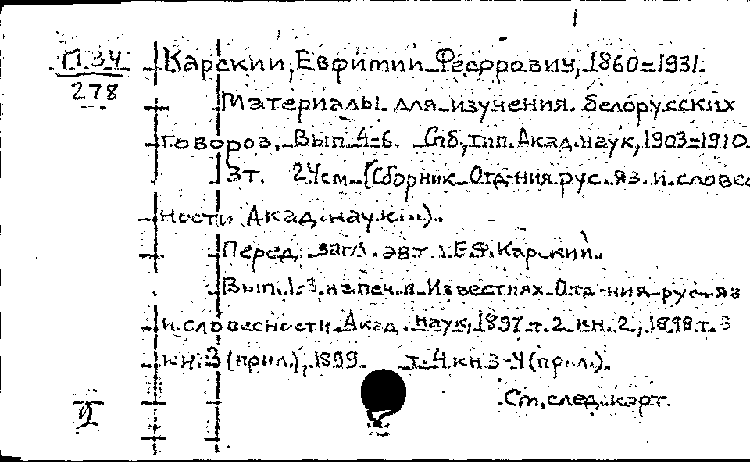 П.34
278
Карский, Евфимий Федорович, 1860-1931.
Материалы для изучения белорусских
говоров. Вып. 4-6. Спб, тип. Акад. наук, 1903-1910.
3т. 24см. (Сборник Отд-ния рус. яз. и словес
ности Акад. наук ...).
Перед загл. авт.: Е.Ф. Карский.
Вып. 1-3 напеч. в Известиях Отд-ния рус. яз
и словесности Акад. наук, 1897 т. 2 кн. 2, 1898 т. 3
кн. 3 (прил.), 1899 т. 4 кн 3-4 (прил.).
См. след. карт.
2